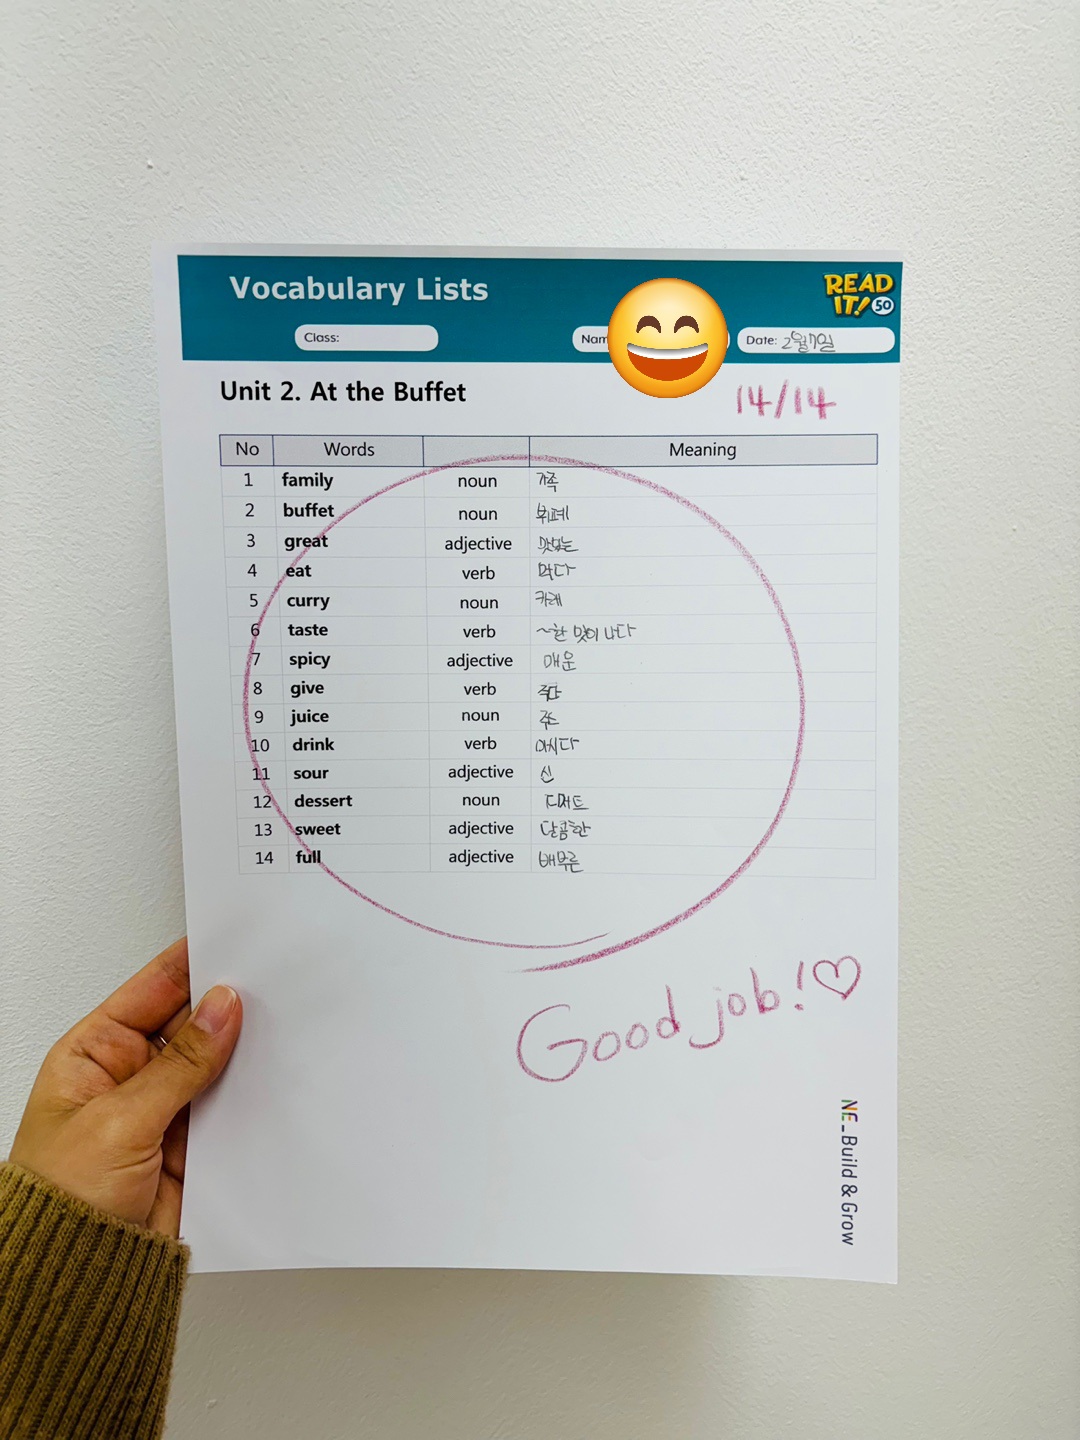 Vocabulary Lists
READ IT! 50
Class:
Nam
Date: 2월7일
Unit 2. At the Buffet
14/14
No Words Meaning
1 family noun 가족
2 buffet noun 뷔페
3 great adjective 맛있는
4 eat verb 먹다
5 curry noun 카레
6 taste verb ~한 맛이 나다
7 spicy adjective 매운
8 give verb 주다
9 juice noun 주스
10 drink verb 마시다
11 sour adjective 신
12 dessert noun
13 sweet adjective 달콤한
14 full adjective 배부른
Good job!♡
NE_Build & Grow